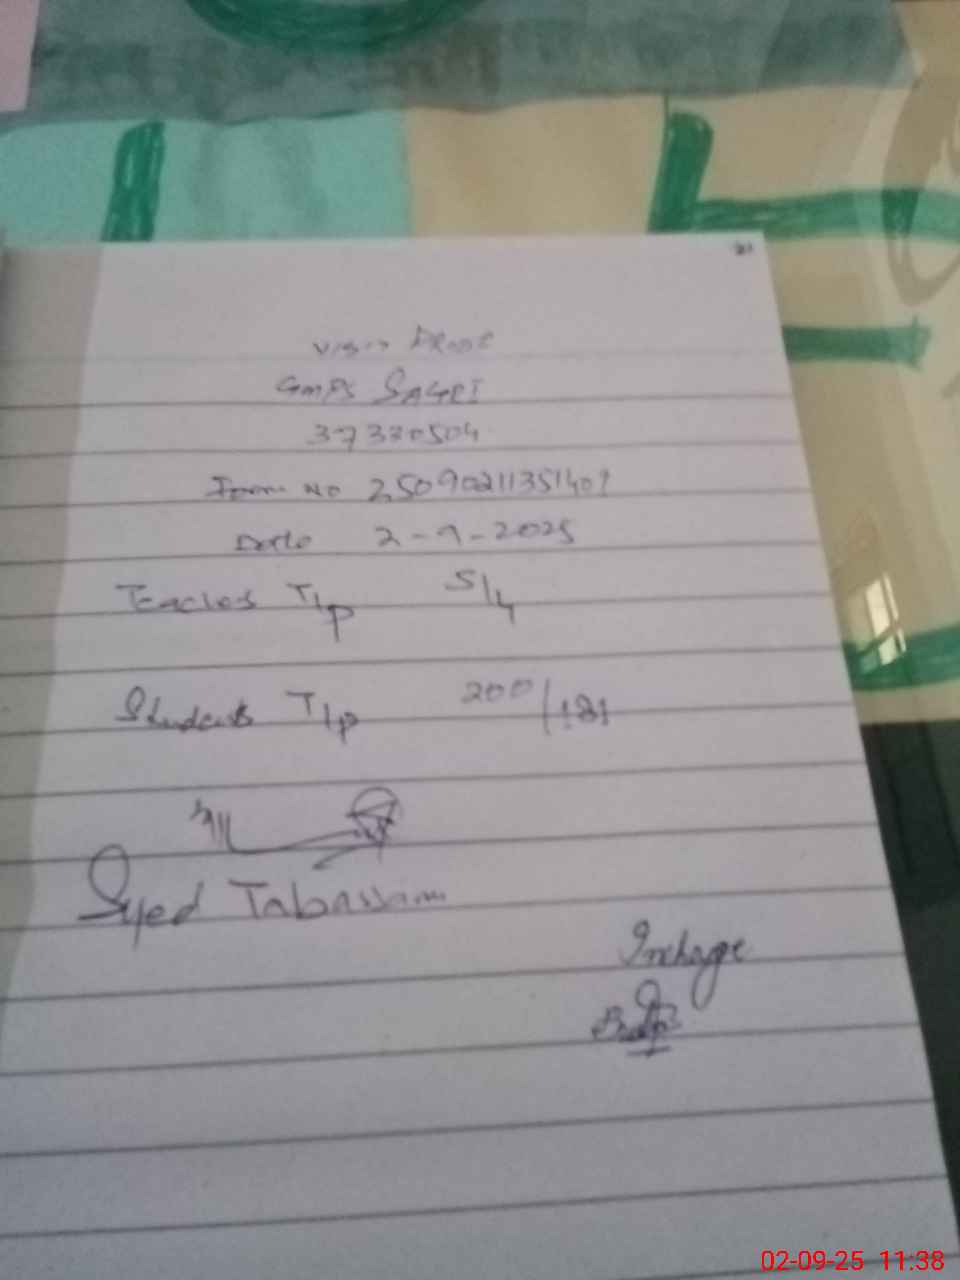 21
Visit Proof
GMPS SAGRI
37330504
Form No 25090211351409
Date 2-9-2025
Teachers T/p 5/4
Students T/p 200/181
Syed Tabassam
Incharge
02-09-25 11:38